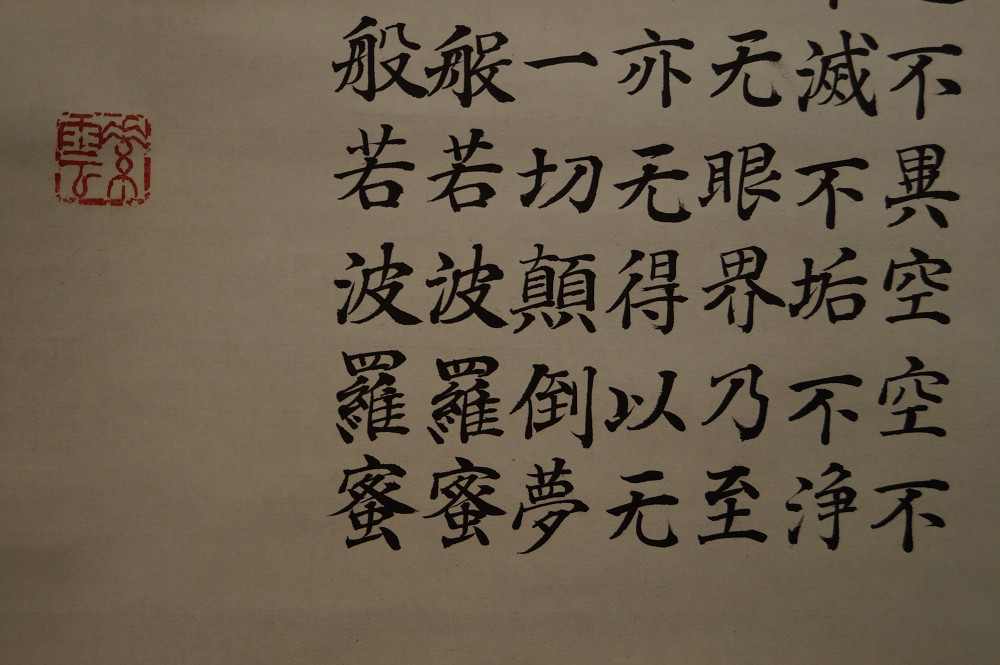 不異空空不
滅不垢不浄
无眼界乃至
亦无得以无
一切顛倒夢
般若波羅蜜
般若波羅蜜